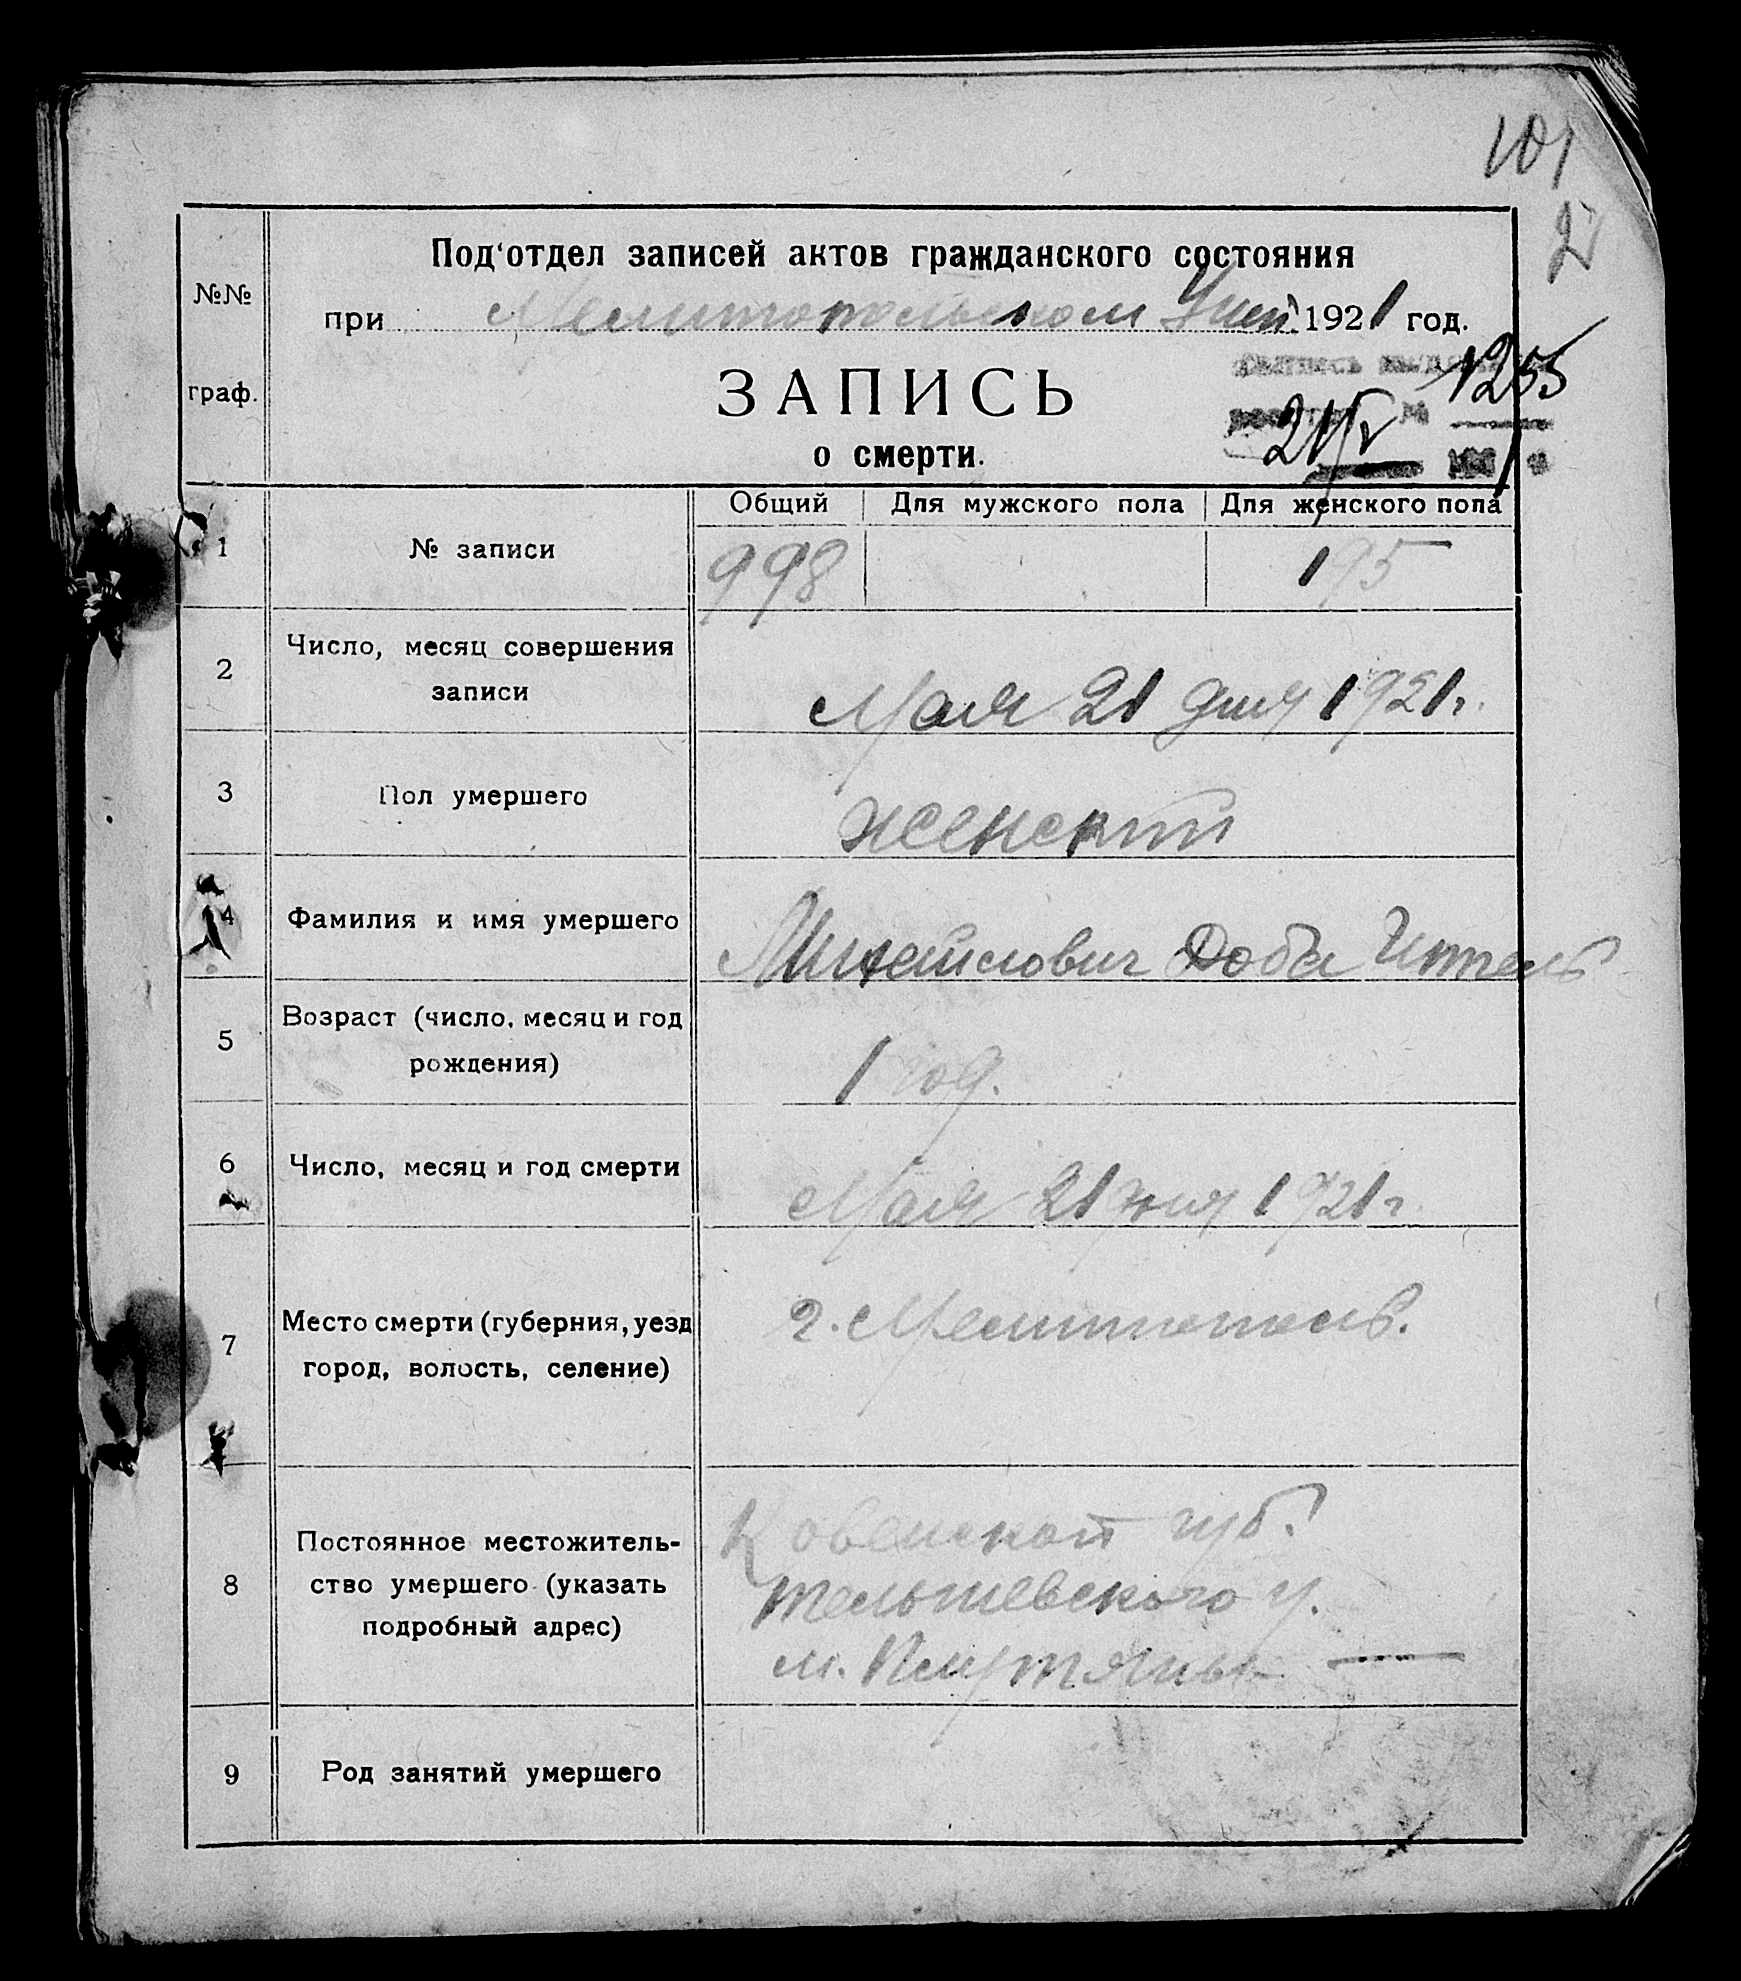 101
2
Под'отдел записей актов гражданского состояния
№№
при Мелитопольском 1921 год.
граф.
ЗАПИСЬ
1255
о смерти.
Общий Для мужского пола Для женского пола
1 № записи 998 195
2 Число, месяц совершения
записи
Мая 21 дня 1921 г.
3 Пол умершего женский
4 Фамилия и имя умершего Доба
5 Возраст (число, месяц и год
рождения)
1 год.
6 Число, месяц и год смерти Мая 21 дня 1921 г.
7 Место смерти (губерния, уезд
город, волость, селение)
г. Мелитополь.
8 Постоянное местожитель-
ство умершего (указать
подробный адрес)
Ковенской губ.
тельшевского у.
м.
9 Род занятий умершего